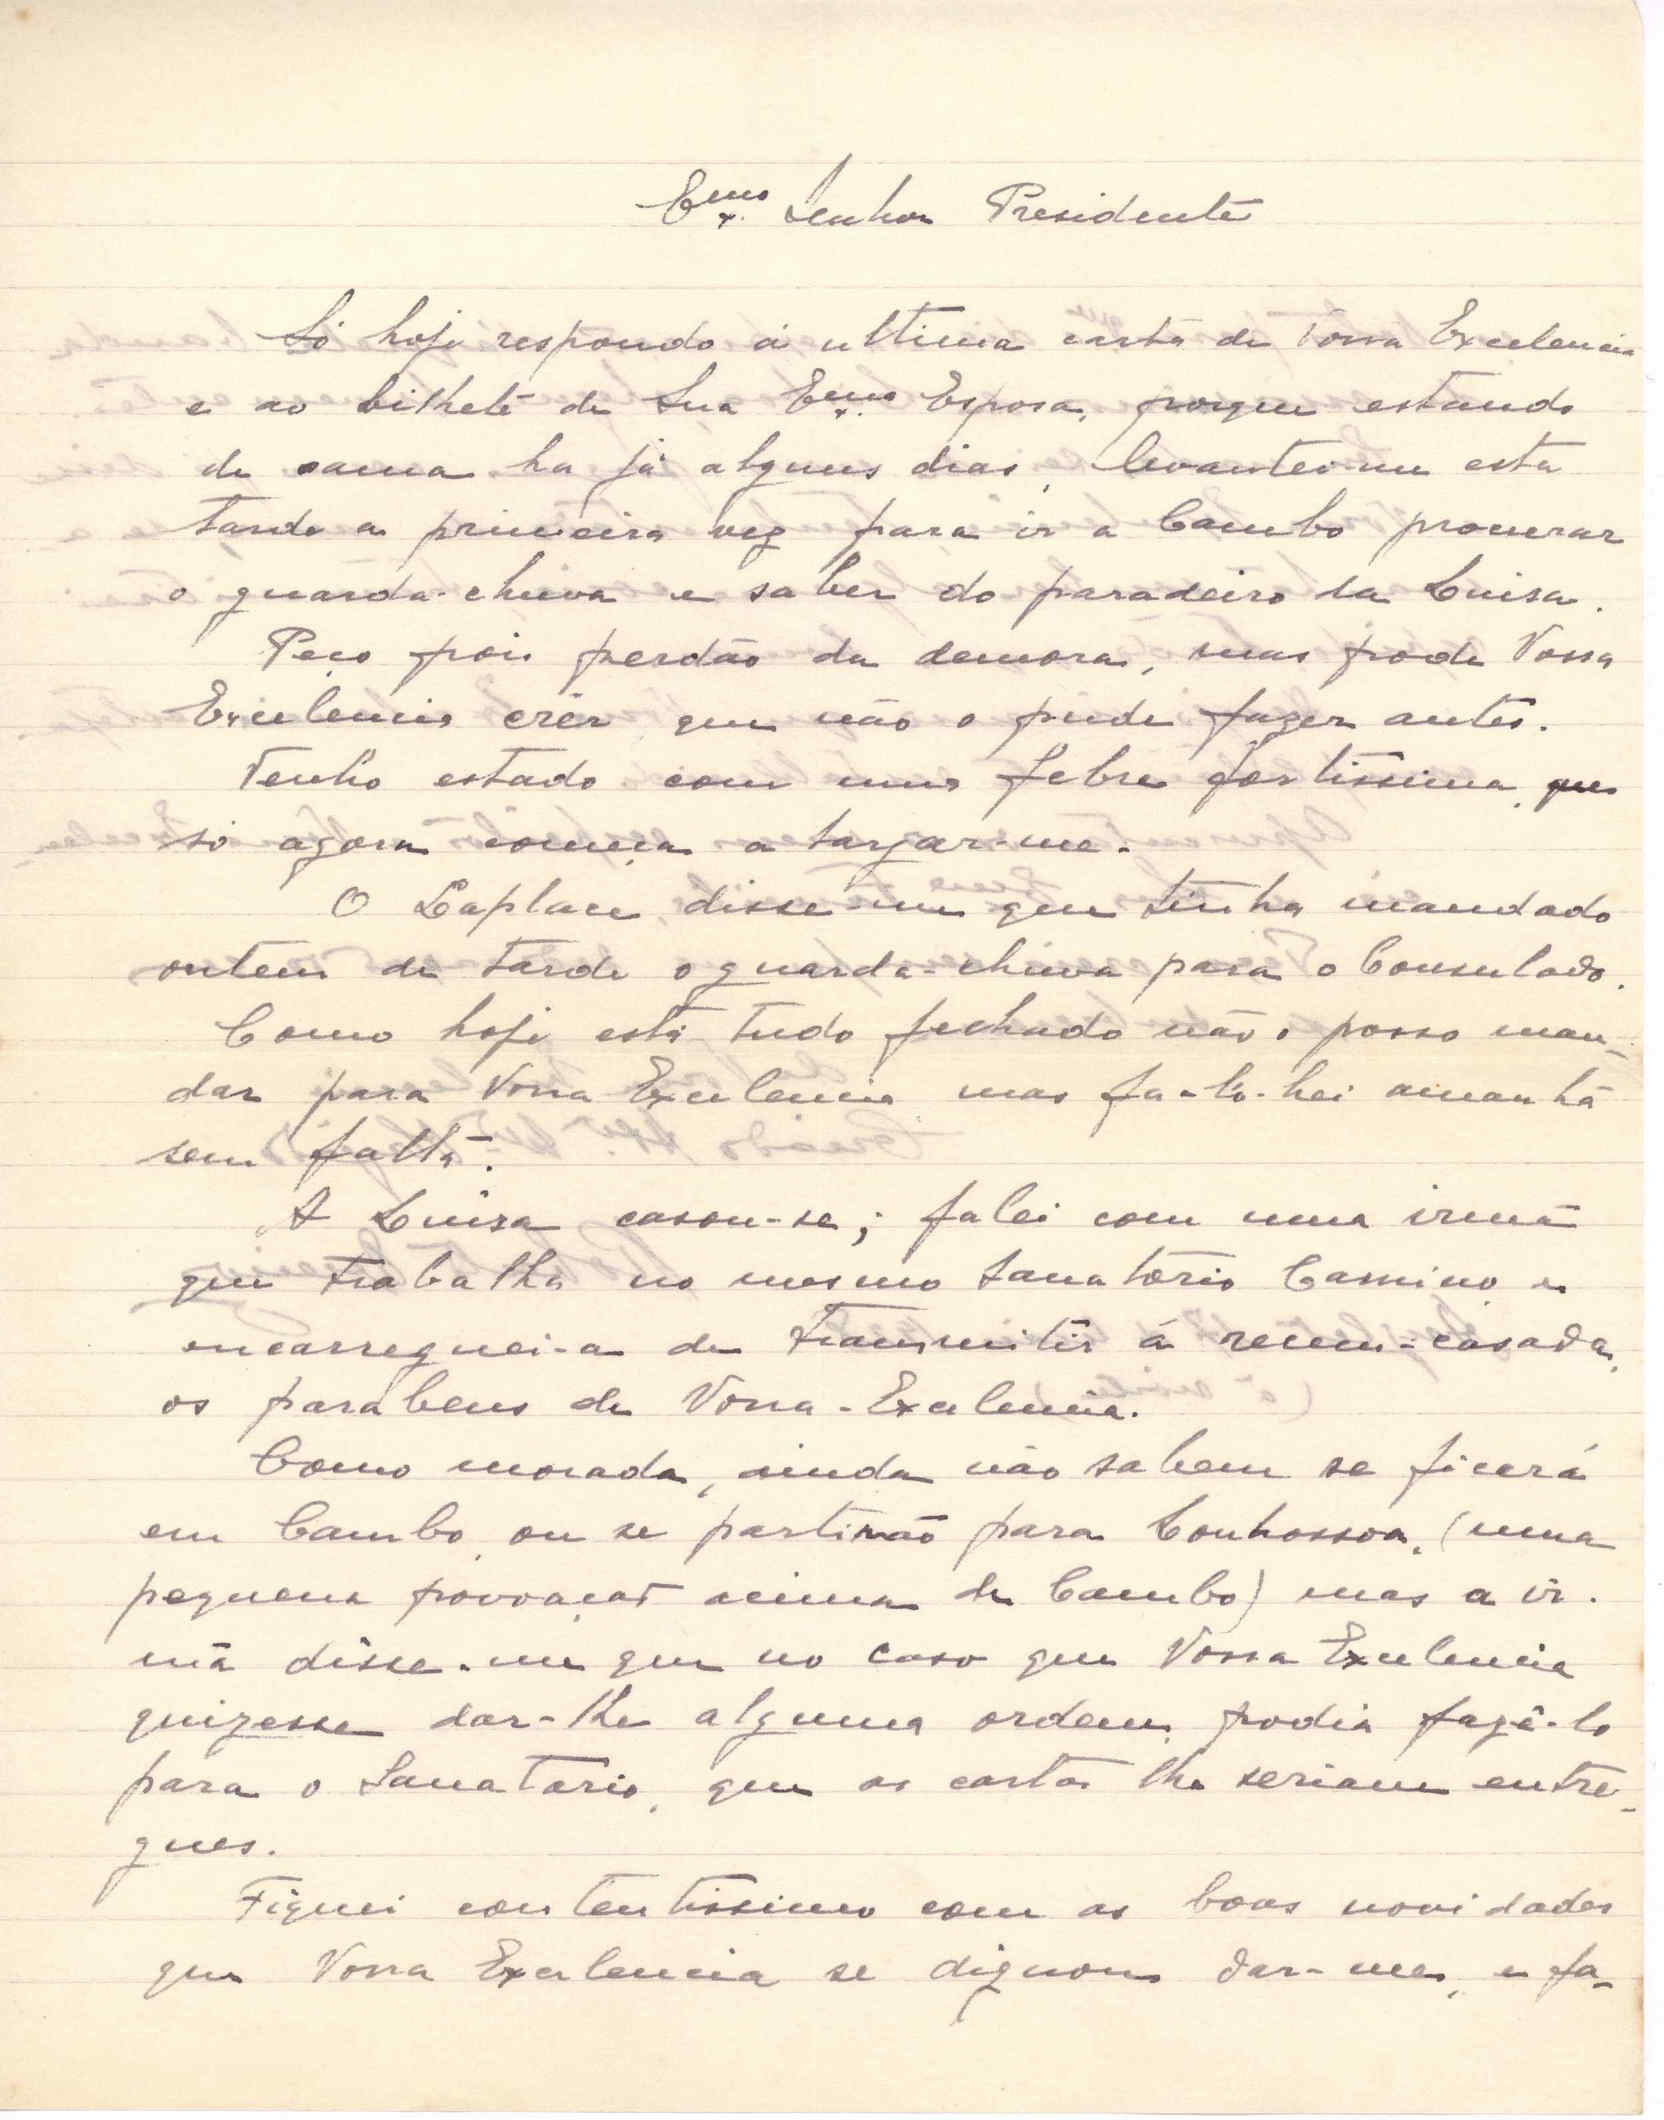 Exmo. Senhor Presidente
Só hoje respondo á ultima carta de Vossa Excelencia
e ao bilhete de Sua Exma. Esposa, porque estando
de cama ha já alguns dias, levantei-me esta
tarde a primeira vez para ir a Cambo procurar
o guarda-chuva e saber do paradeiro da Luisa.
Peço pois perdão da demora, mas pode Vossa
Excelencia crêr que não o pude fazer antes.
Tenho estado com uma febre fortissima, que
só agora começa a largar-me.
O Laplace, disse-me que tinha mandado
ontem de tarde o guarda-chuva para o Consulado.
Como hoje está tudo fechado não o posso man-
dar para Vossa Excelencia mas fa-lo-hei amanhã
sem falta.
A Luisa casou-se; falei com uma irmã
que trabalha no mesmo Sanatorio e
encarreguei-a de transmitir á recem-casada,
os parabens de Vossa-Excelencia.
Como morada, ainda não sabem se ficará
em Cambo, ou se partirão para (uma
pequena povoação acima de Cambo) mas a ir-
mã disse-me que no caso que Vossa Excelencia
quizesse dar-lhe alguma ordem, podia fazê-lo
para o Sanatorio, que as cartas lhe seriam entre-
gues.
Fiquei contentissimo com as boas novidades
que Vossa Excelencia se dignou dar-me, e fa-